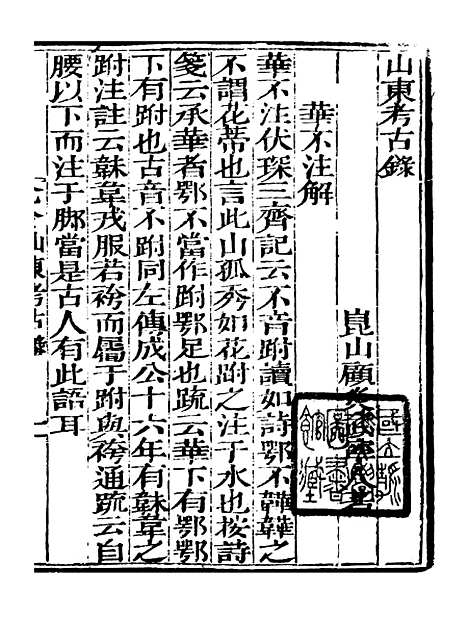 山東考古錄
崑山顧炎武寧人著
華不注解
華不注伏琛三齊記云不音跗讀如詩鄂不韡韡之
不謂花蒂也言此山孤秀如花跗之注于水也按詩
箋云承華者鄂不當作跗鄂足也䟽云華下有鄂鄂
下有跗也古音不跗同左傳成公十六年有韎韋之
跗注註云韎韋戎服若袴而屬于跗與袴通䟽云自
腰以下而注于脚當是古人有此語耳
山東考古錄
一